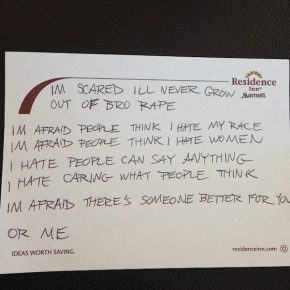 Residence
Inn®
Marriott
IM SCARED ILL NEVER GROW
OUT OF BRO RAPE
IM AFRAID PEOPLE THINK I HATE MY RACE
IM AFRAID PEOPLE THINK I HATE WOMEN
I HATE PEOPLE CAN SAY ANYTHING
I HATE CARING WHAT PEOPLE THINK
IM AFRAID THERE'S SOMEONE BETTER FOR YOU
OR ME
IDEAS WORTH SAVING.
residenceinn.com